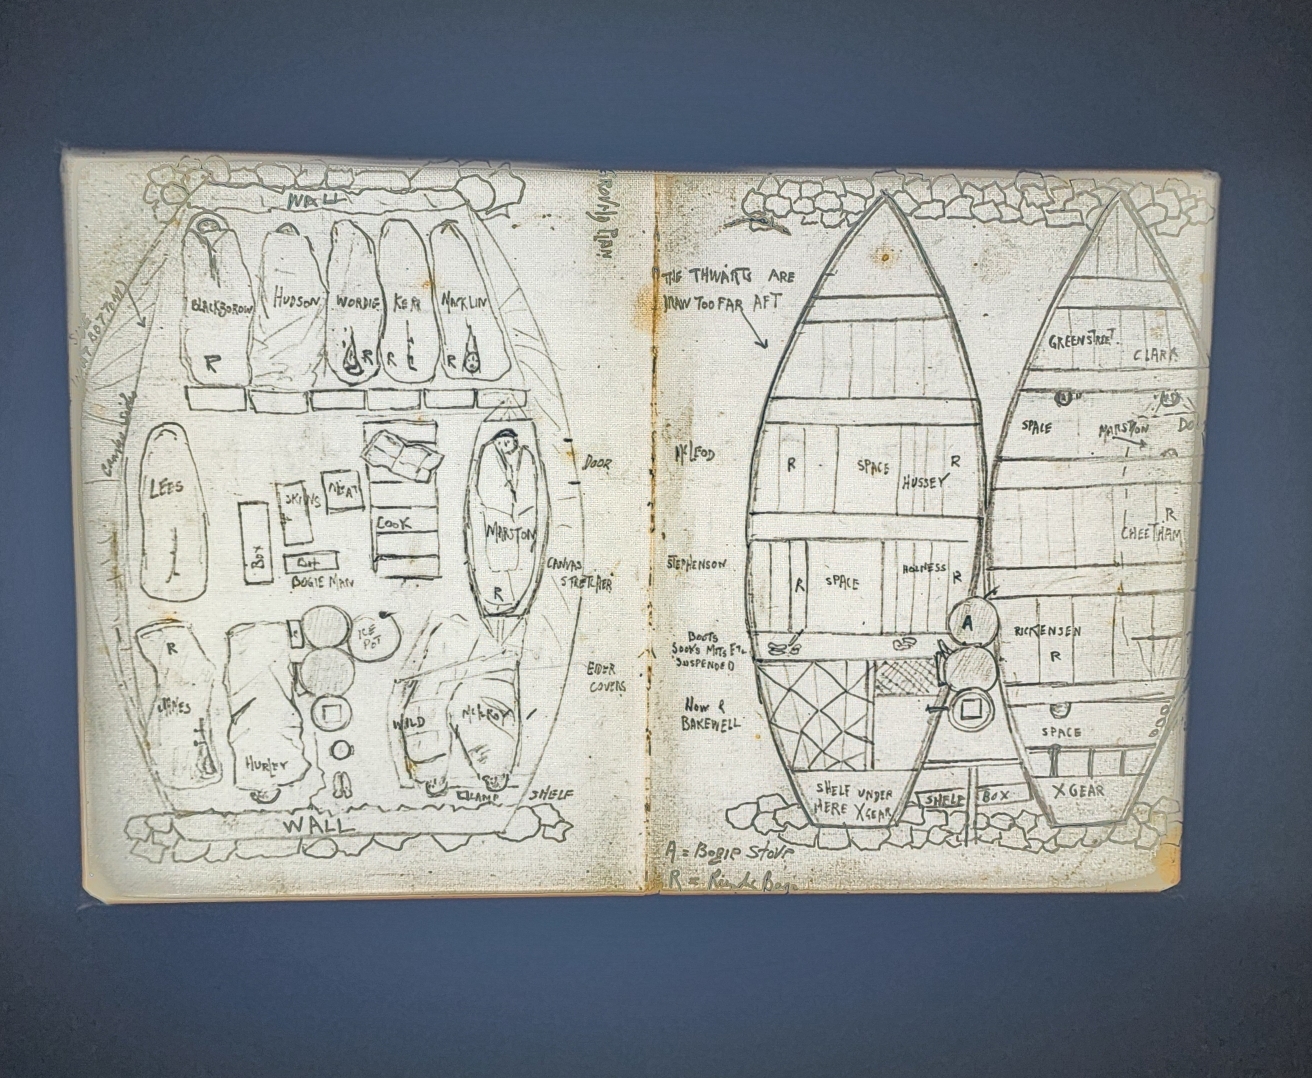 WALL
BLACKBOROW
HUDSON
WORDIE
KERR
MACKLIN
R
R
R
R
LEES
SKINS
MEAT
BOX
COOK
BOGIE MAN
MARSTON
R
DOOR
CANVAS
STRETCHER
ICE
POT
R
JAMES
HURLEY
WILD
McILROY
EIDER
COVERS
LAMP
SHELF
WALL
THE THWARTS ARE
DRAW TOO FAR AFT
McLEOD
STEPHENSON
BOOTS
SOCKS MITS ETC
SUSPENDED
HOW &
BAKEWELL
R
SPACE
HUSSEY
R
R
SPACE
HOLNESS
R
SHELF UNDER
HERE X GEAR
SHELF
BOX
A
GREENSTREET
CLARK
SPACE
MARSTON
DO
R
CHEETHAM
RICKENSEN
R
SPACE
X GEAR
A = BOGIE STOVE
R =